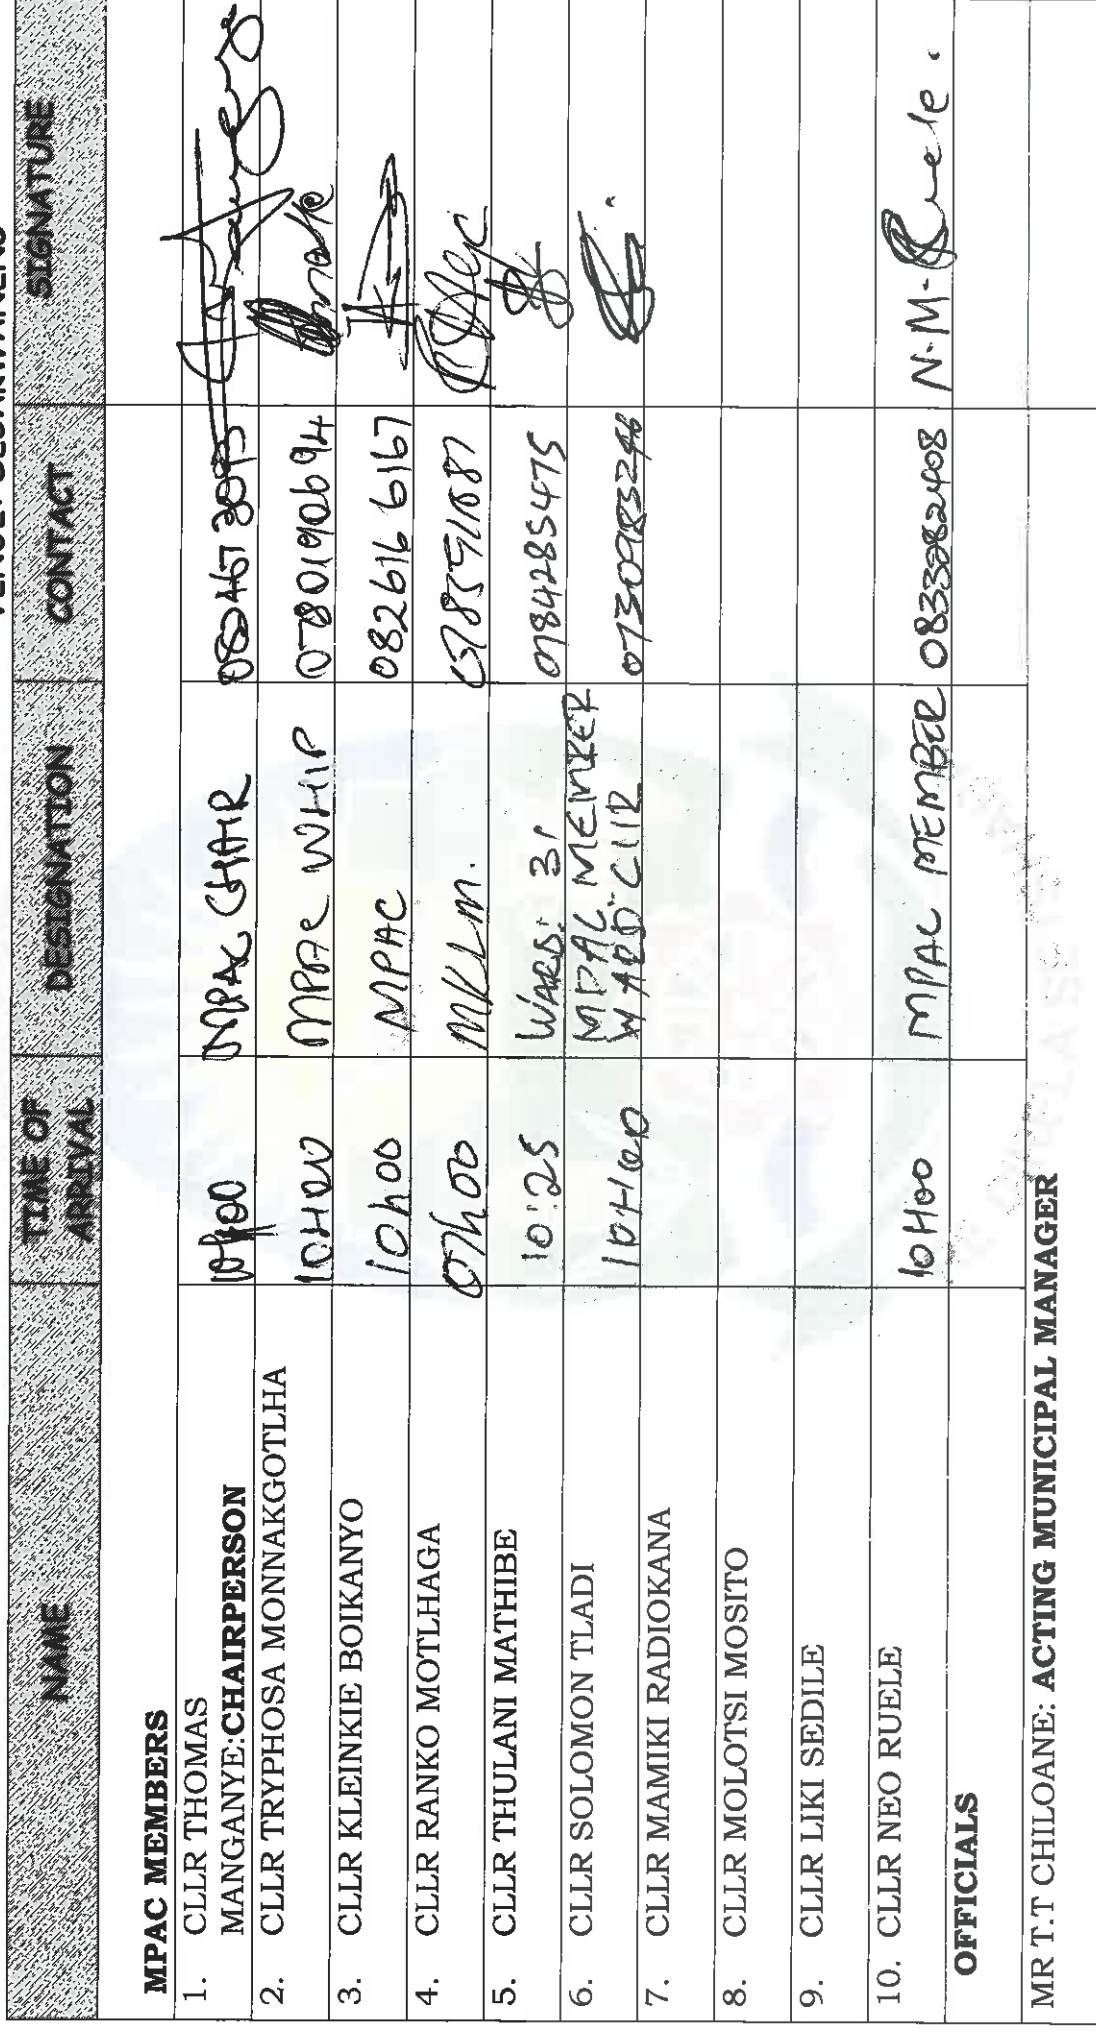 NAME TIME OF ARRIVAL DESIGNATION CONTACT SIGNATURE
MPAC MEMBERS
1. CLLR THOMAS
MANGANYE:CHAIRPERSON 10h00 MPAC CHAIR
2. CLLR TRYPHOSA MONNAKGOTLHA 10H00 MPAC WHIP 0780190694
3. CLLR KLEINKIE BOIKANYO 10h00 MPAC 082616 6167
4. CLLR RANKO MOTLHAGA 07h00 MKLM.
5. CLLR THULANI MATHIBE 10:25 WARD: 31 0784285475
6. CLLR SOLOMON TLADI 10H00 MPAC MEMBER
WARD CllR 0730983246
7. CLLR MAMIKI RADIOKANA
8. CLLR MOLOTSI MOSITO
9. CLLR LIKI SEDILE
10. CLLR NEO RUELE 10H00 MPAC MEMBER 0833282408 N.M. Ruele.
OFFICIALS
MR T.T CHILOANE: ACTING MUNICIPAL MANAGER